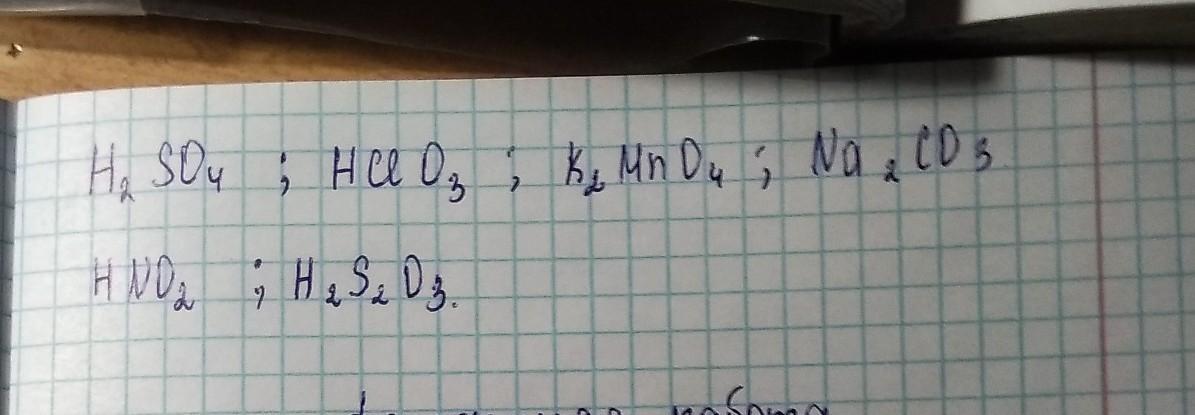 H₂SO₄ ; HClO₃ ; K₂MnO₄ ; Na₂CO₃
HNO₂ ; H₂S₂O₃.
работа